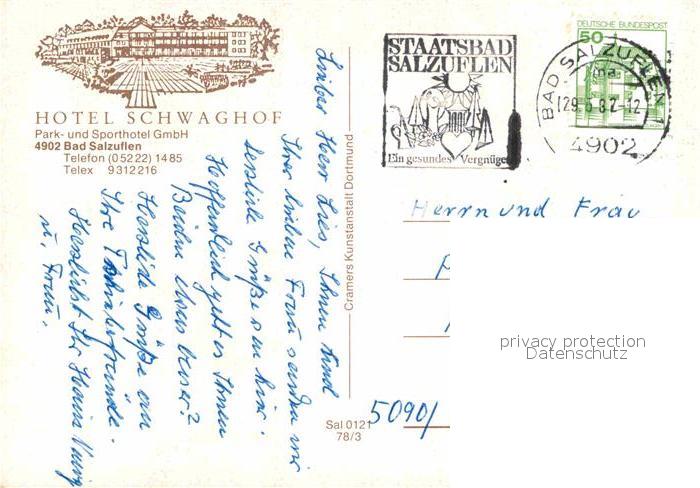 HOTEL SCHWAGHOF
Park- und Sporthotel GmbH
4902 Bad Salzuflen
Telefon (0 52 22) 14 85
Telex 9 312 216
Lieber Herr Lies, Ihnen und
Ihrer lieben Frau senden wir
herzliche Grüße von hier.
Hoffentlich geht es Ihnen
Beiden etwas besser?
Herzliche Grüße an
Ihre
Herzlichst Ihr Hans
u. Frau.
Cramers Kunstanstalt Dortmund
Sal 0121
78/3
STAATSBAD
SALZUFLEN
Ein gesundes Vergnügen
BAD SALZUFLEN 1
29.6.82-12
4902
DEUTSCHE BUNDESPOST
50
Herrn und Frau
5090/
privacy protection
Datenschutz